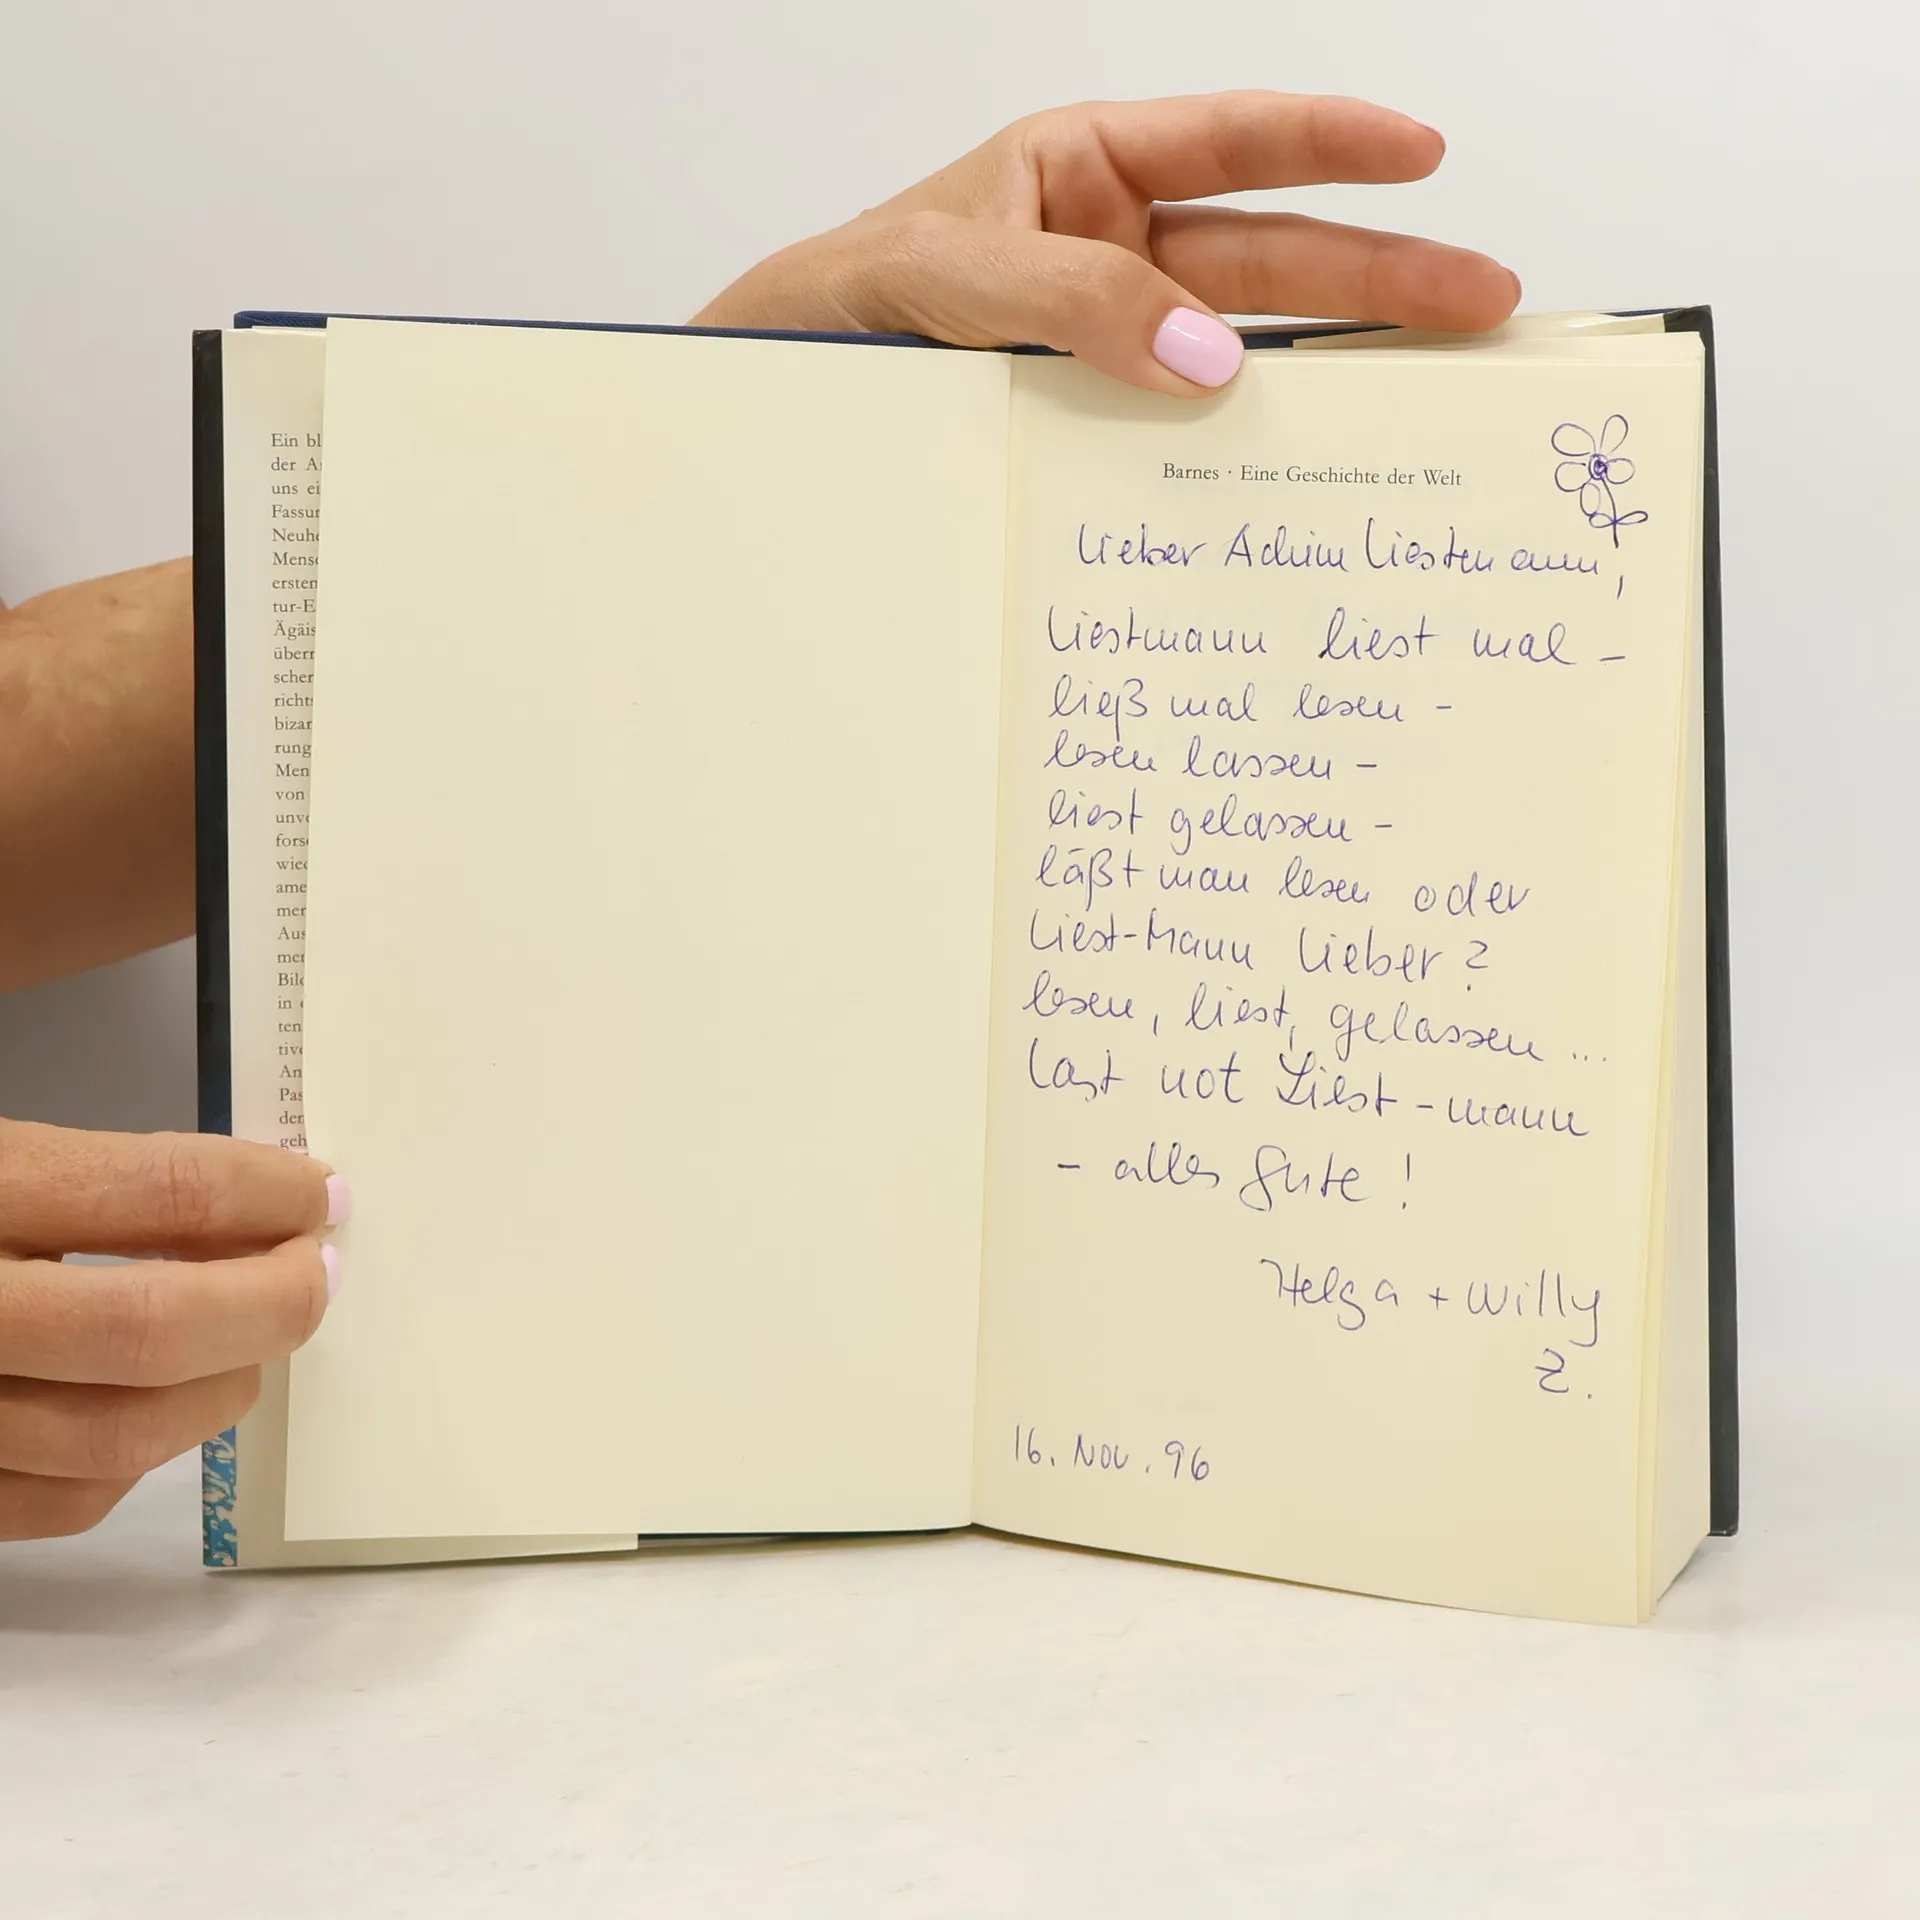 Ein bl
der A
uns ei
Fassun
Neuhe
Mensc
ersten
tur-E
Ägäis
überr
scher
richts
bizar
rung
Men
von
unve
forse
wied
ame
mer
Aus
mer
Bild
in
ten
tive
An
Pas
den
geh
Barnes · Eine Geschichte der Welt
Lieber Achim Liestmann,
Liestmann liest mal –
ließ mal lesen –
lesen lassen –
liest gelassen –
läßt man lesen oder
Liest-Mann lieber?
lesen, liest, gelassen ...
Last not Liest-mann
– alles Gute!
Helga + Willy
Z.
16. Nov. 96